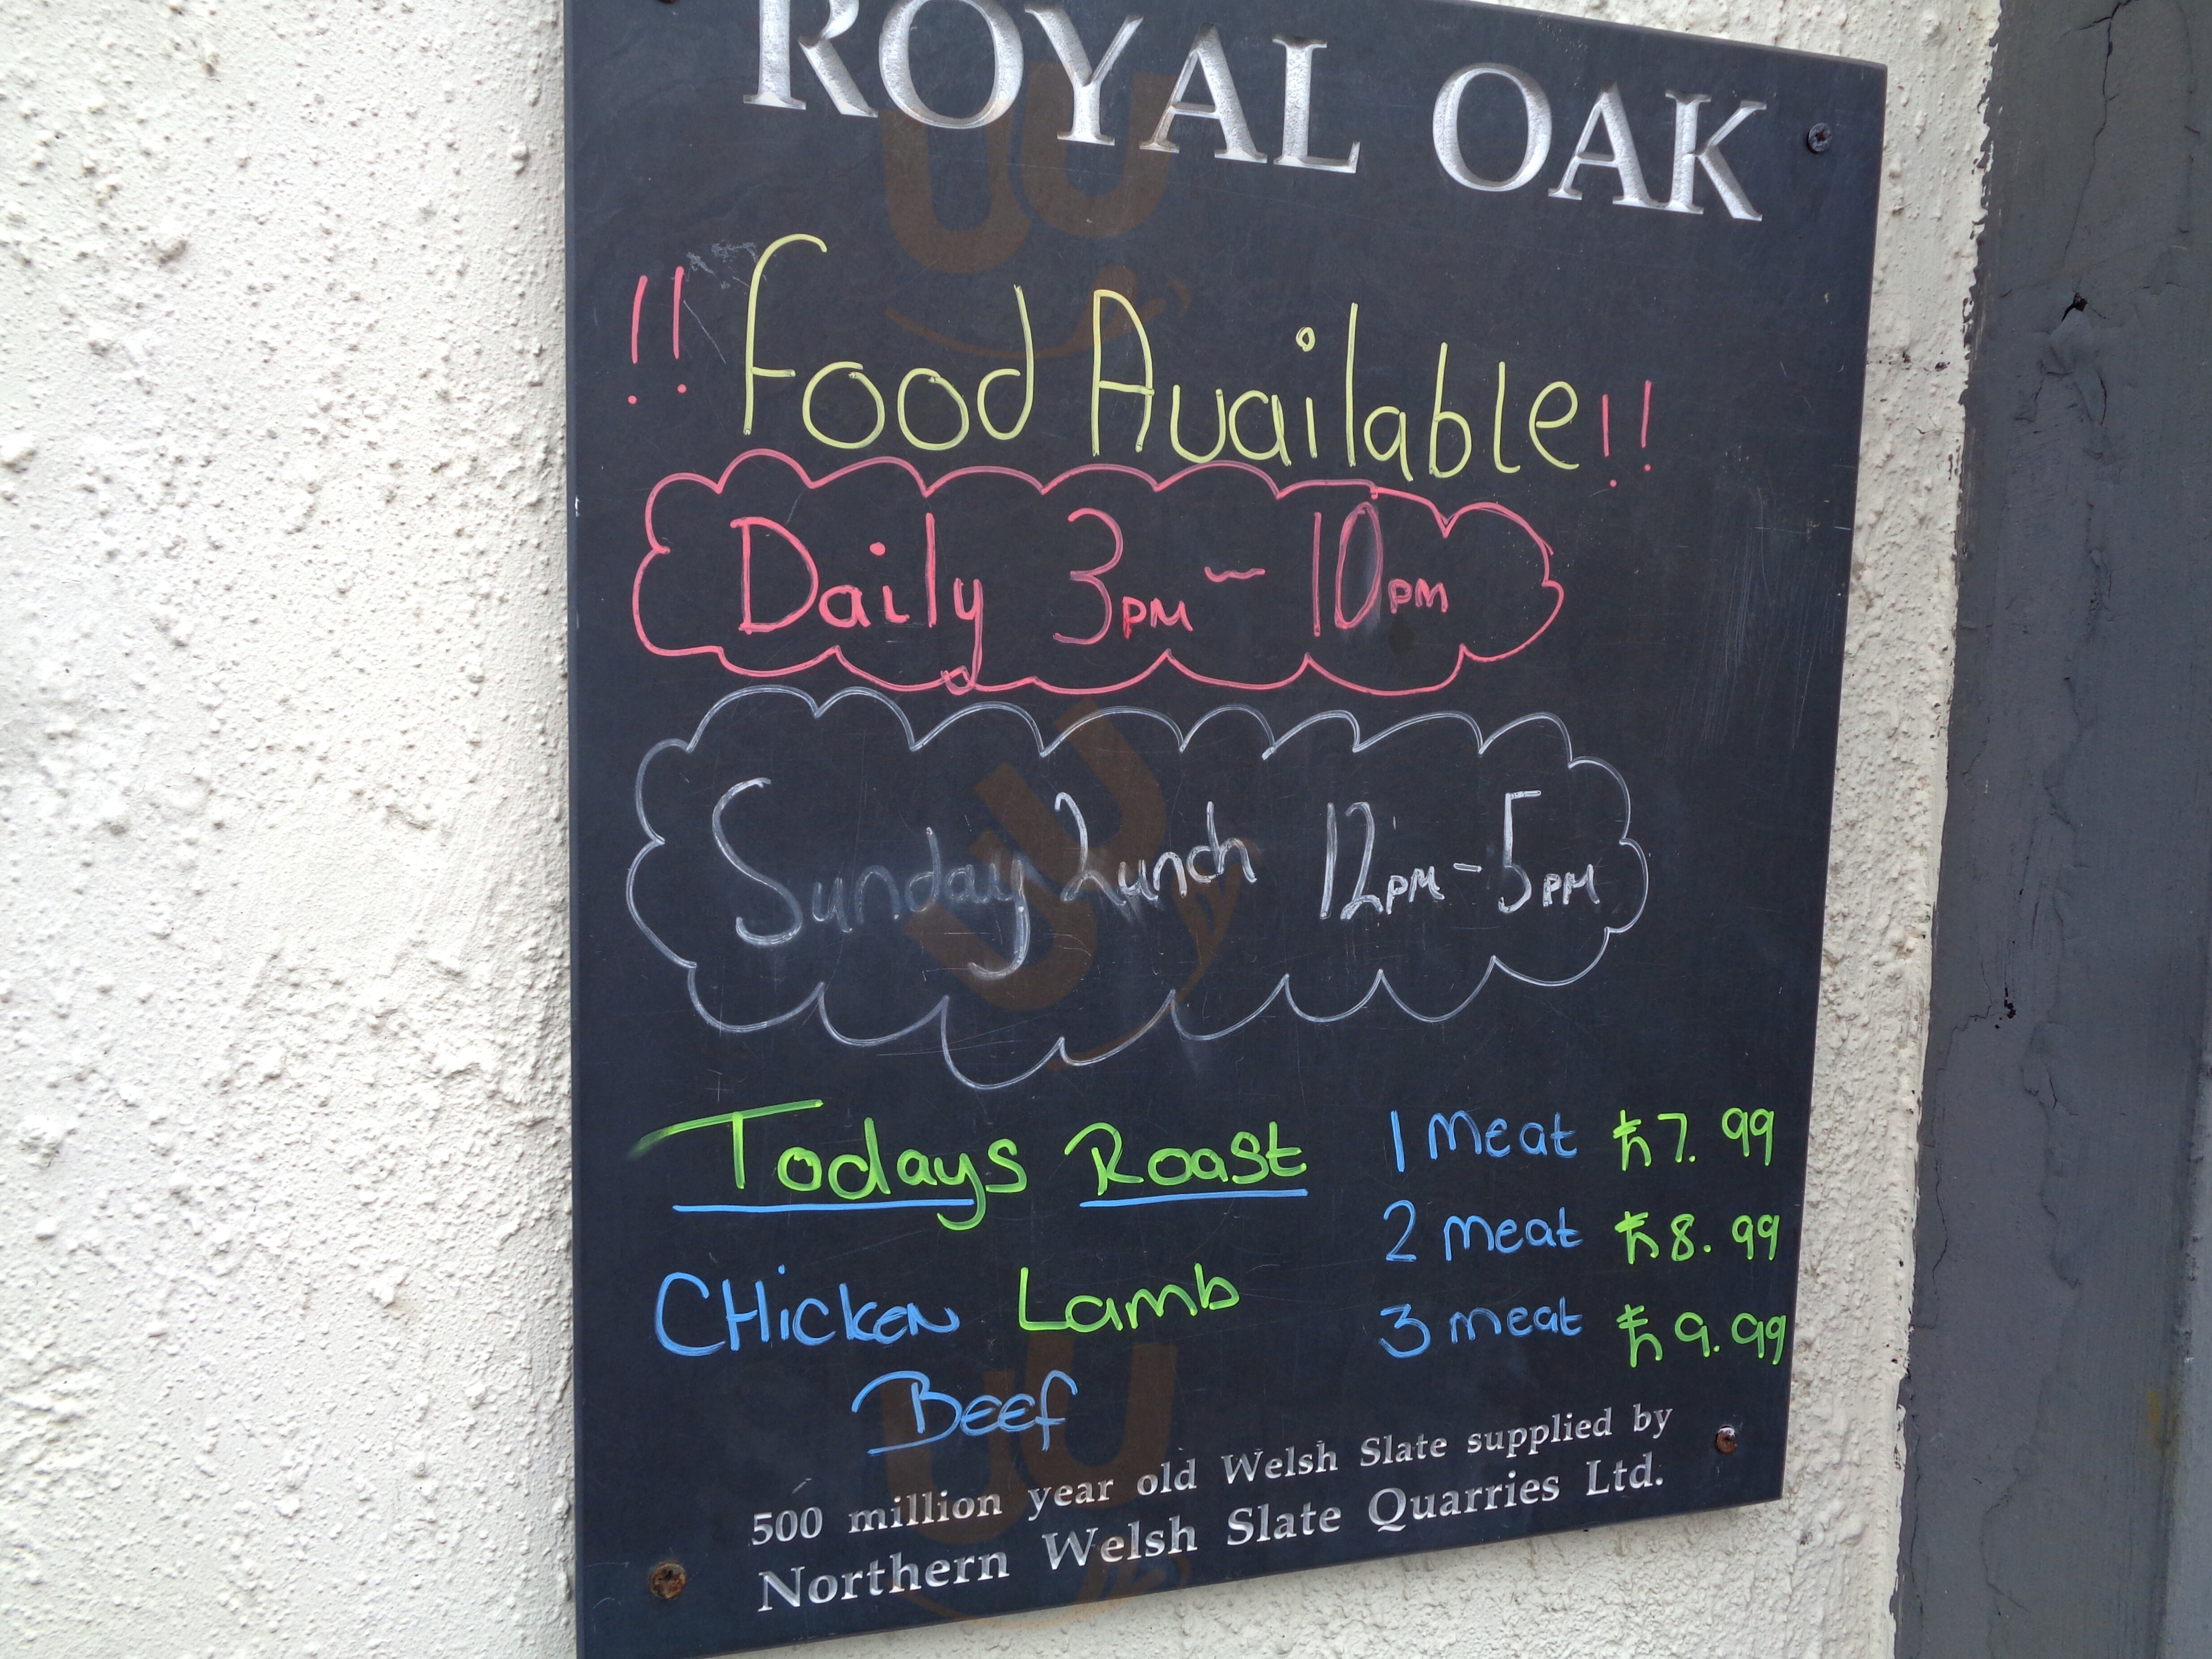 ROYAL OAK
!! Food Available !!
Daily 3PM - 10PM
Sunday Lunch 12PM - 5PM
Todays Roast
CHicken Lamb
Beef
1 meat £7.99
2 meat £8.99
3 meat £9.99
500 million year old Welsh Slate supplied by
Northern Welsh Slate Quarries Ltd.